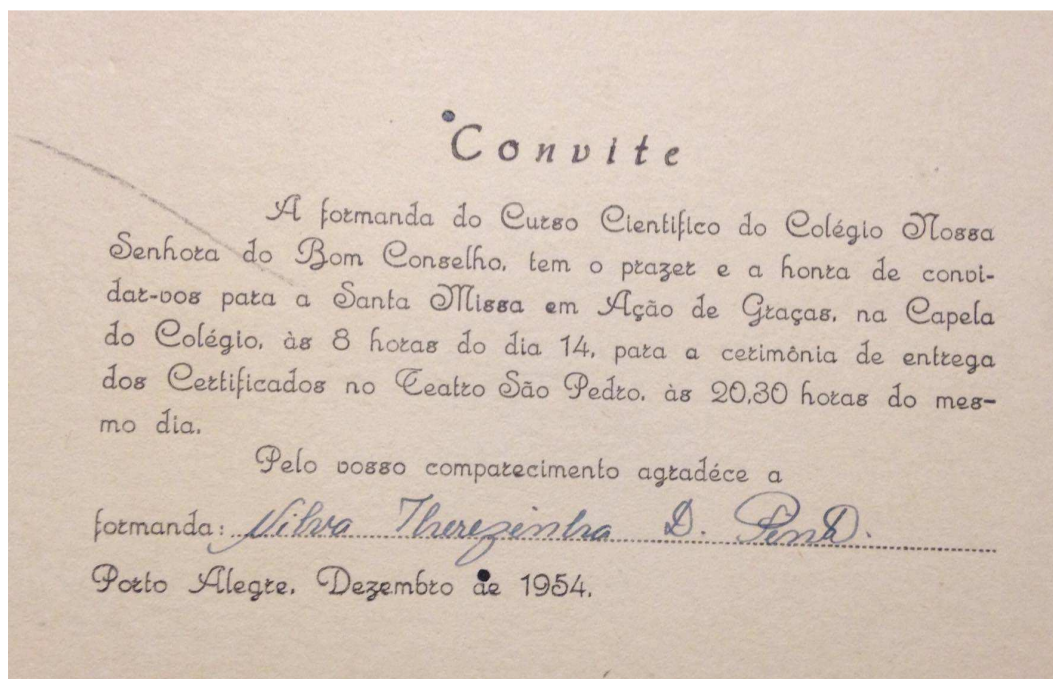 Convite
A formanda do Curso Cientifico do Colégio Nossa
Senhora do Bom Conselho, tem o prazer e a honra de convi-
dar-vos para a Santa Missa em Ação de Graças, na Capela
do Colégio, às 8 horas do dia 14, para a cerimônia de entrega
dos Certificados no Teatro São Pedro, às 20,30 horas do mes-
mo dia.
Pelo vosso comparecimento agradéce a
formanda: Nilva Therezinha D.
Porto Alegre, Dezembro de 1954.